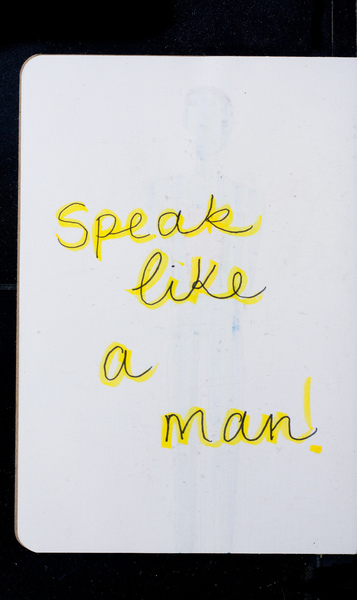 Speak
like
a
man!